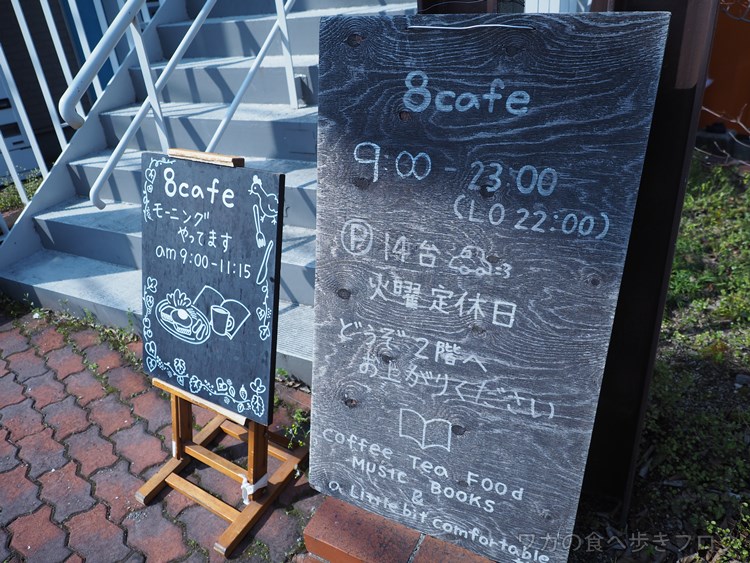 8cafe
モーニング
やってます
am 9:00-11:15
8cafe
9:00 - 23:00
(LO 22:00)
Ⓟ 14台
火曜定休日
どうぞ2階へ
お上がりください
coffee Tea Food
Music Books
&
a Little bit comfortable
ワガの食べ歩きブログ